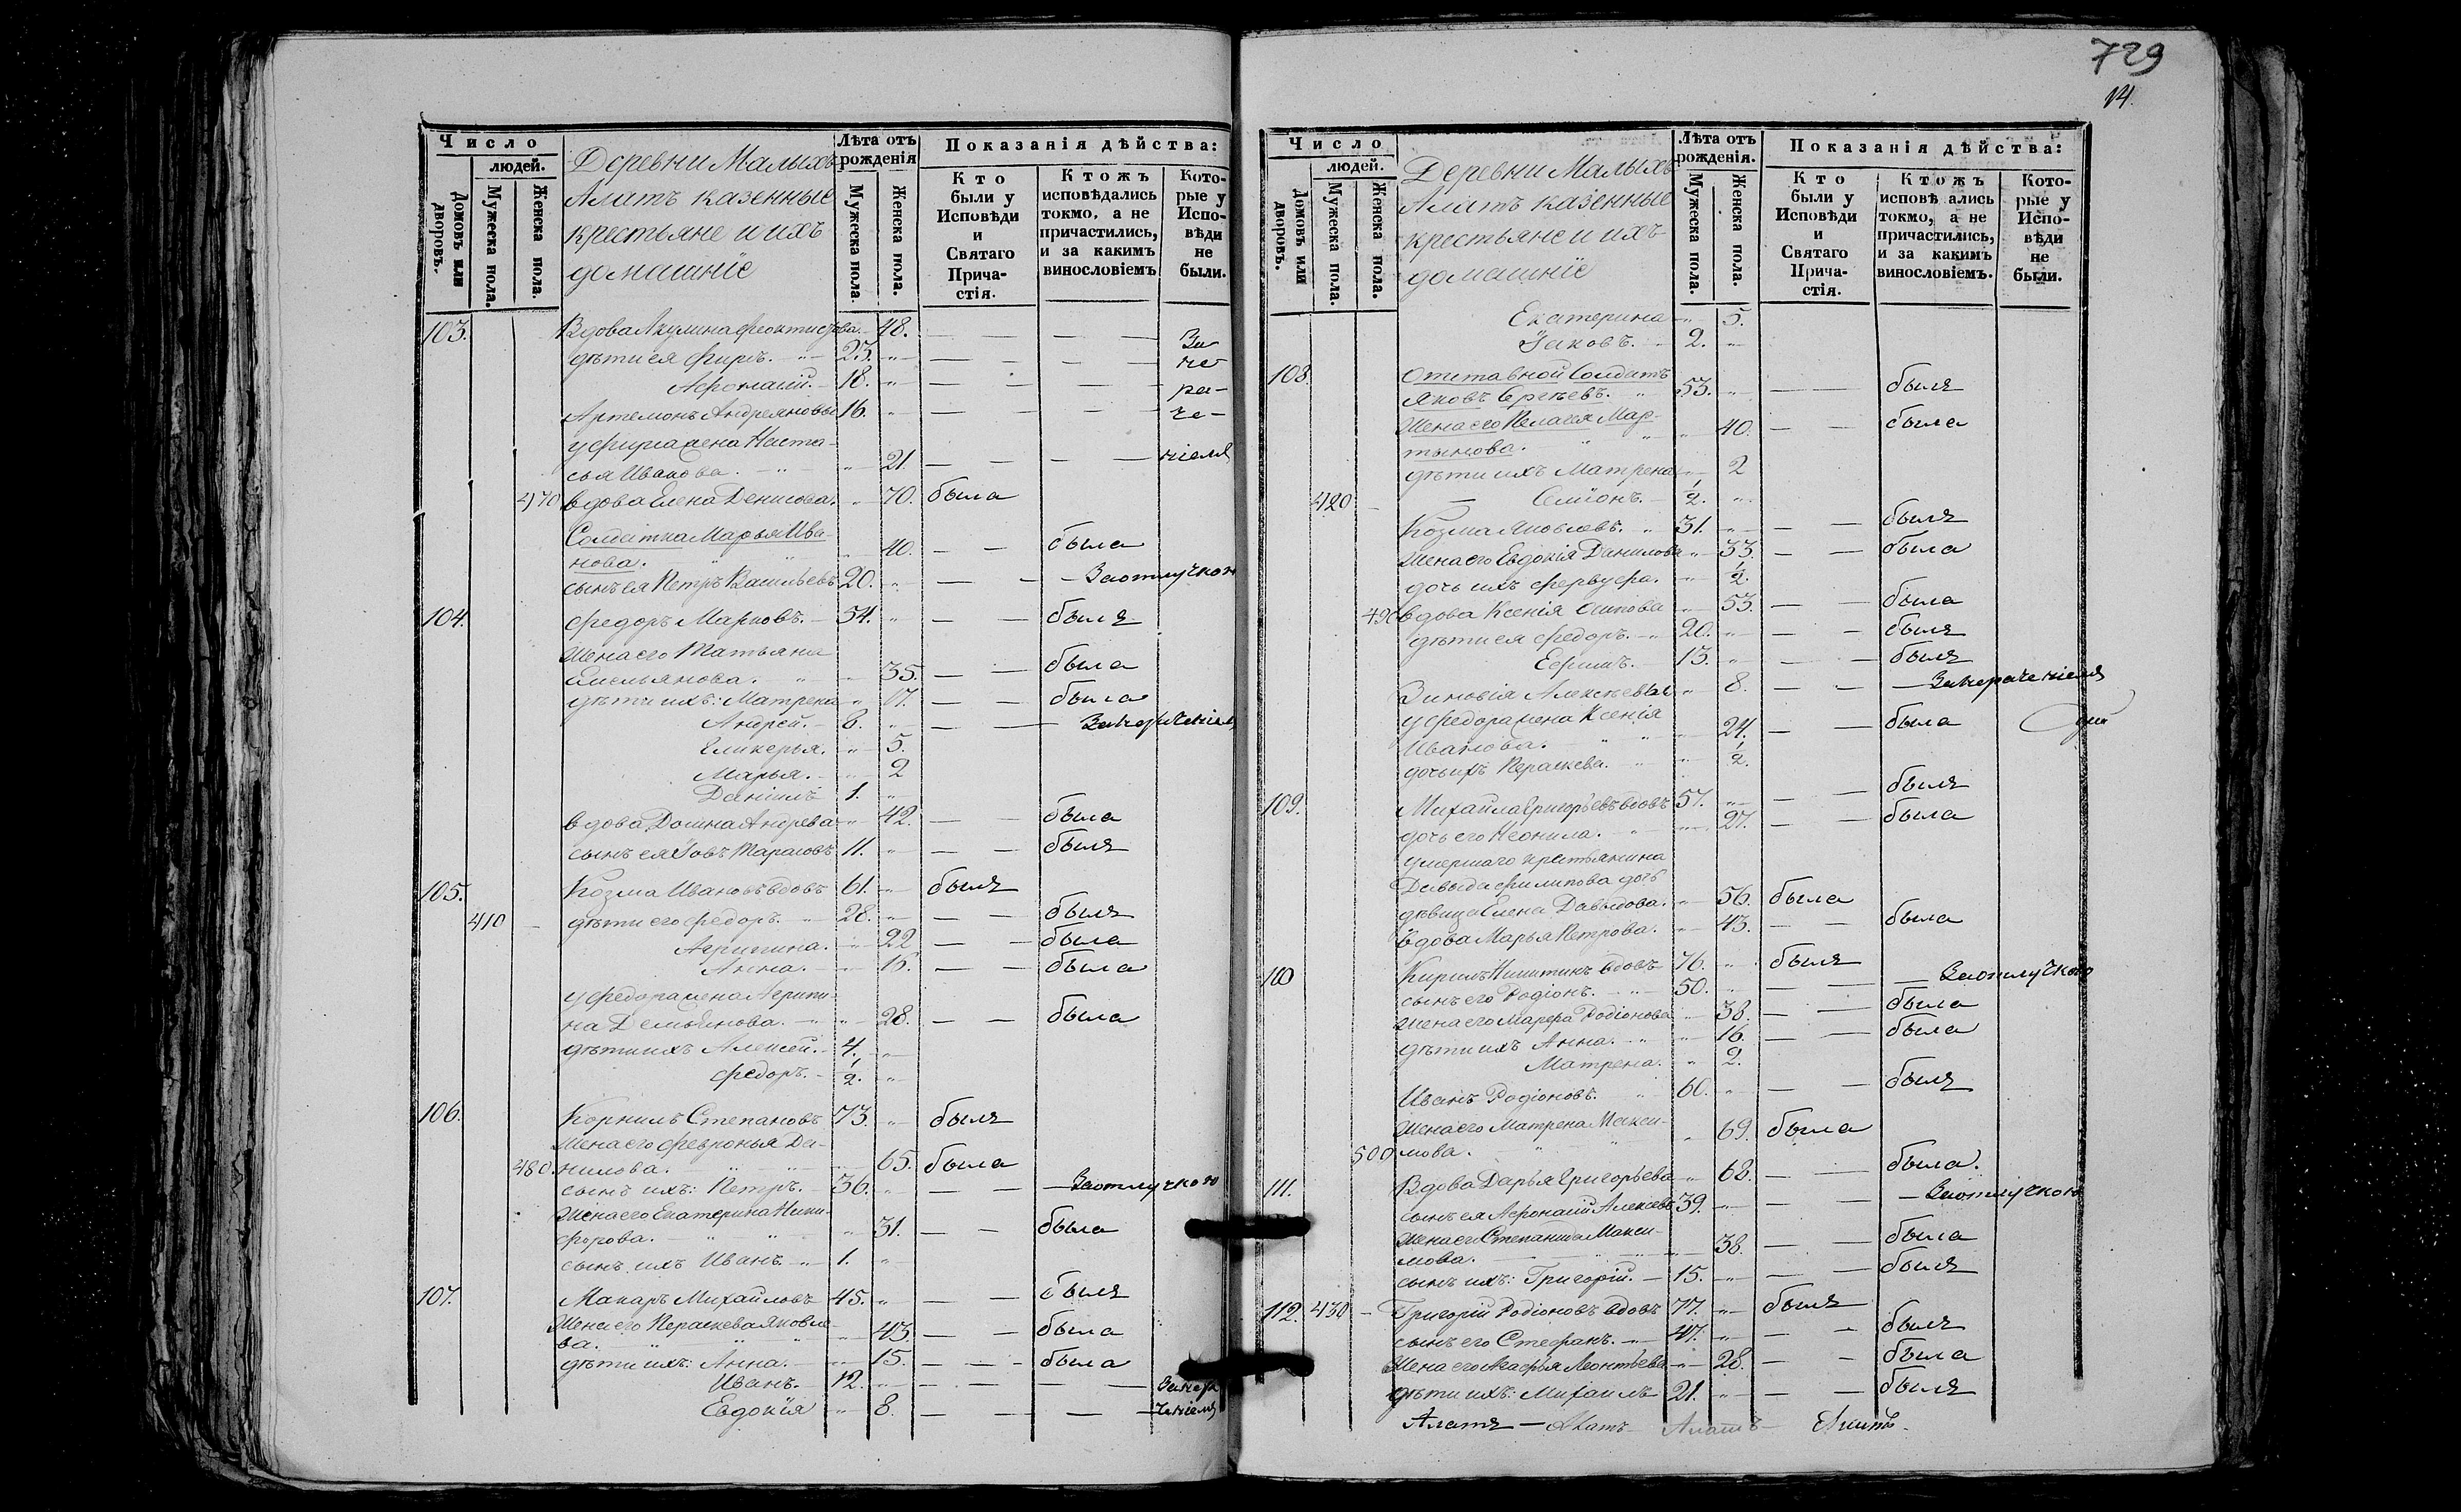 Число
людей.
Домовъ или дворовъ.
Мужеска пола.
Женска пола.
Деревни Малыхъ
Алатъ казенные
крестьяне и ихъ
домашніе
Лѣта отъ рожденія
Мужеска пола.
Женска пола.
Показанія дѣйства:
Кто были у Исповѣди и Святаго Прича-стія.
Ктожъ исповѣдались токмо, а не причастились, и за какимъ винословіемъ
Кото-рые у Испо-вѣди не были.
103. Вдова Акулина Феоктистова. 48. За
дѣти ея Фирсъ. 23. не
Афонасій. 18. ра-
Артемонъ Андреяновы 16. че-
у Фирса жена Наста-
сья Иванова. 21. ніемъ
470 вдова Елена Денисова. 70. была
Солдатка Марья Ива-
нова. 40. была
сынъ ея Петръ Васильевъ 20. За отлучкою
104. Федоръ Марковъ. 54. былъ
Жена его Татьяна
Емельянова. 35. была
дѣти ихъ: Матрена 17. была
Андрей. 8. За нераченіемъ
Гликерья. 5.
Марья. 2
Даніилъ 1.
вдова Домна Андреева 42. была
сынъ ея Іовъ Тарасовъ 11. былъ
105. Козма Ивановъ вдовъ 61. былъ
410 дѣти его Федоръ. 28. былъ
Агрипина. 22 была
Анна. 16. была
у Федора жена Агрипи-
на Демьянова. 28. была
дѣти ихъ Алексей. 4.
Федоръ. 1/2.
106. Корнилъ Степановъ 73. былъ
Жена его Февронья Да-
480. нилова. 65. была
сынъ ихъ: Петръ. 36. За отлучкою
Жена его Екатерина Ники-
форова. 31. была
сынъ ихъ Иванъ. 1.
107. Макаръ Михайловъ 45. былъ
Жена его Параскева Яковле-
ва. 43. была
дѣти ихъ: Анна. 15. была
Иванъ. 12. За нера
Евдокія 8. ченіемъ
729
14.
Число
людей.
Домовъ или дворовъ.
Мужеска пола.
Женска пола.
Деревни Малыхъ
Алатъ казенные
крестьяне и ихъ
домашніе
Лѣта отъ рожденія.
Мужеска пола.
Женска пола.
Показанія дѣйства:
Кто были у Исповѣди и Святаго Прича-стія.
Ктожъ исповѣ ались токмо, а не причастились, и за какимъ винословіемъ.
Кото-рые у Испо-вѣди не были.
Екатерина 5.
Іаковъ. 2.
108. Отставной Солдатъ
Яковъ Сергѣевъ. 53. былъ
Жена его Пелагея Мар-
тынова. 40. была
дѣти ихъ Матрена 2
420 Симіонъ. 1/2.
Козма Яковлевъ. 31. былъ
Жена его Евдокія Данилова 33. была
дочь ихъ 1/2.
490 вдова Ксенія Осипова 53. была
дѣти ея Федоръ. 20. былъ
Ефимъ. 13. былъ
Зиновія Алексѣевы 8. За нераченіемъ
у Федора жена Ксенія
Иванова. 24. была
дочь ихъ Параскева. 1/2.
109. Михайла Григорьевъ вдовъ 57. былъ
дочь его Неонила. 27. была
умершаго крестьянина
Давыда Филипова дочь
дѣвица Елена Давыдова. 56. была
вдова Марья Петрова. 43. была
110 Кирилъ Никитинъ вдовъ 76. былъ
сынъ его Родіонъ. 50. За отлучкою
Жена его Марфа Родіонова 38. была
дѣти ихъ Анна. 16. была
Матрена. 2.
Иванъ Родіоновъ. 60. былъ
Жена его Матрена Макси-
500 мова. 69. была
111. Вдова Дарья Григорьева 68. была.
сынъ ея Афонасій Алексѣевъ 39. За отлучкою
Жена его Степанида Макси-
мова. 38. была
сынъ ихъ: Григорій. 15. былъ
112. 430 Григорій Родіоновъ вдовъ 77. былъ
сынъ его Стефанъ. 47. былъ
Жена его Агафья Леонтьева 28. была
дѣти ихъ: Михаилъ 21. былъ
Алатъ — Алатъ Алатъ